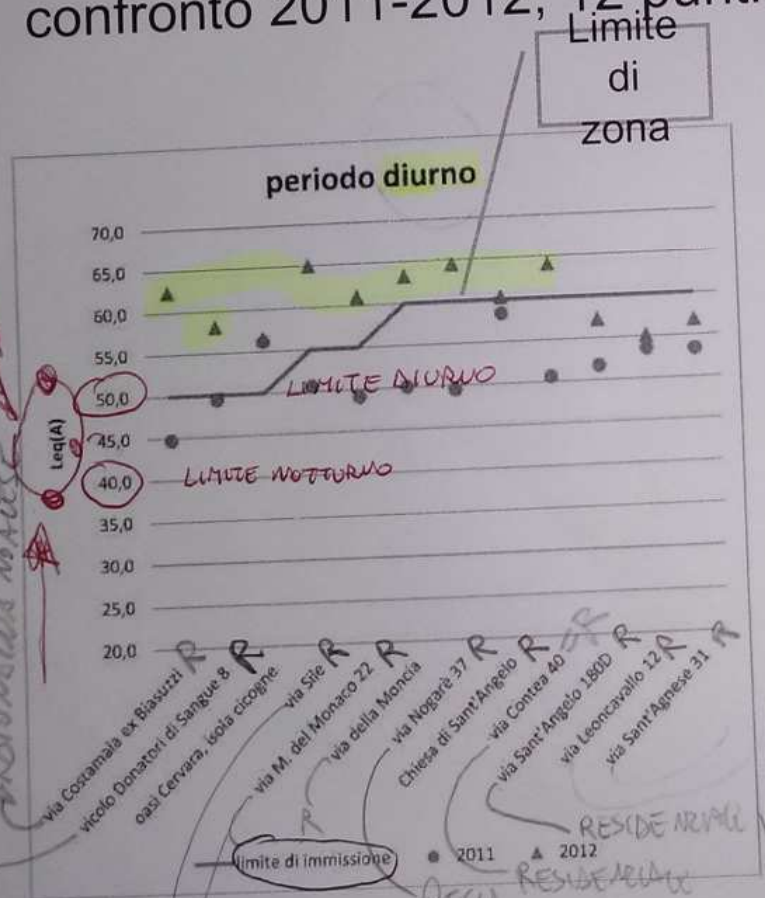 confronto 2011-2012, 12 punti
Limite
di
zona
periodo diurno
70,0
65,0
60,0
55,0
50,0
45,0
40,0
35,0
30,0
25,0
20,0
Leq(A)
LIMITE DIURNO
LIMITE NOTTURNO
via Costamala ex Biasuzzi R
vicolo Donatori di Sangue 8 R
oasi Cervara, isola cicogne
via Sile R
via M. del Monaco 22 R
via della Moncia
R
via Nogarè 37 R
Chiesa di Sant'Angelo R
via Contea 40 R
via Sant'Angelo 180D R
via Leoncavallo 12 R
via Sant'Agnese 31 R
RESIDENZIALE
limite di immissione 2011 2012
RESIDENZIALE